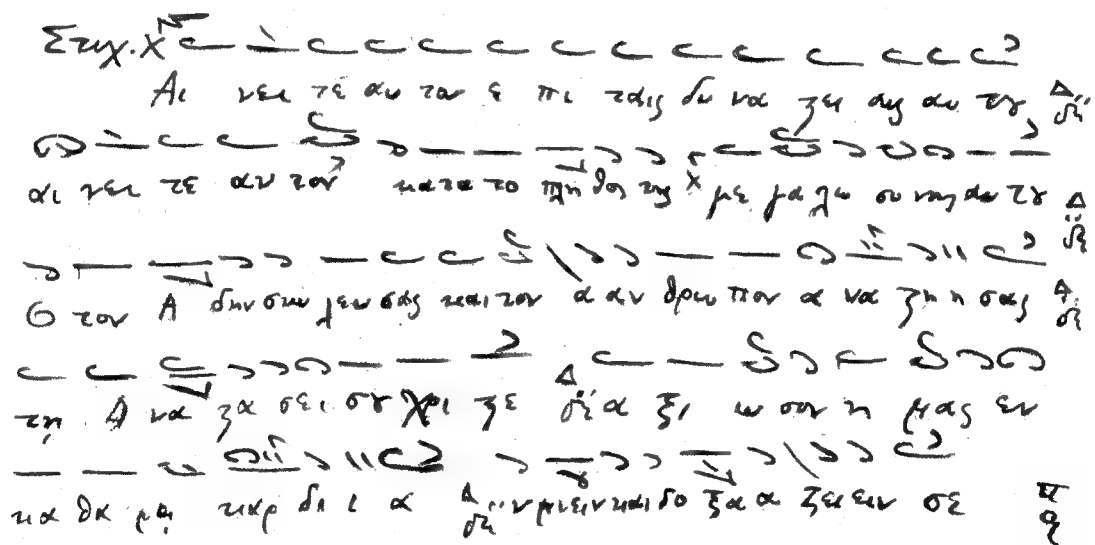 Στιχ. χ
Αι νει τε αυ τον ε πι ταις δυ να ζει αις αυ τȣ Δ δι
αι νει τε αυ τον κα τα το πλη θος της χ με γα λω συ νης αυ τȣ Δ δι
Ο τον Α δην σκυ λευ σας και τον α αν θρω πον α να ζη η σας Δ δι
τη Α να ζα σει σȣ Χρι ζε Δ δι α ξι ω σον η μας εν
κα θα ρα καρ δι ι α Δ δι υμνειν και δο ξα α ζει ειν σε π q